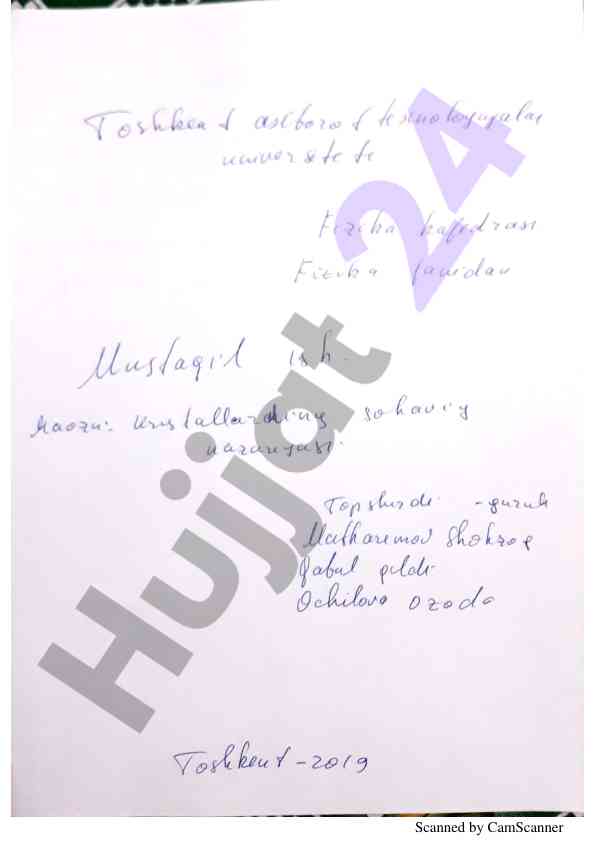 Toshkent axborot texnologiyalar
universiteti
Fizika kafedrasi
Fizika fanidan
Mustaqil ish.
Mavzu: Kristallarding sohaviy
nazariyasi.
Topshirdi - guruh
Matkarimov Shohzog
Qabul qildi
Ochilova Ozoda
Toshkent - 2019
Hujjat 24
Scanned by CamScanner